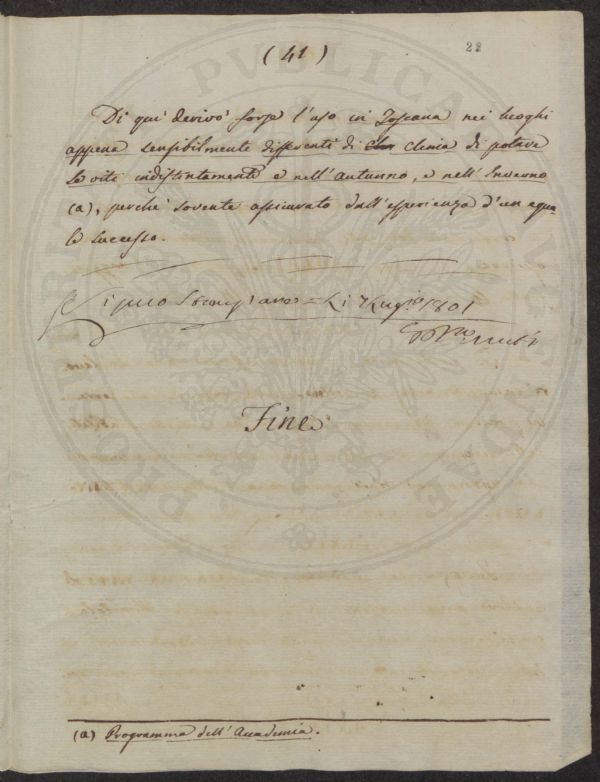 22
(41)
Di quì derivò forse l'uso in Toscana nei luoghi
appena sensibilmente differenti di clima di potare
le viti indistintamente e nell'autunno, e nell'Inverno
(a), perchè sovente assicurato dall'esperienza d'un egua-
le successo.
Si può Stampare = Li 7 1801
Fine
(a) Programma dell'Accademia.
PROSPERITATI PUBLICAE AUGENDAE